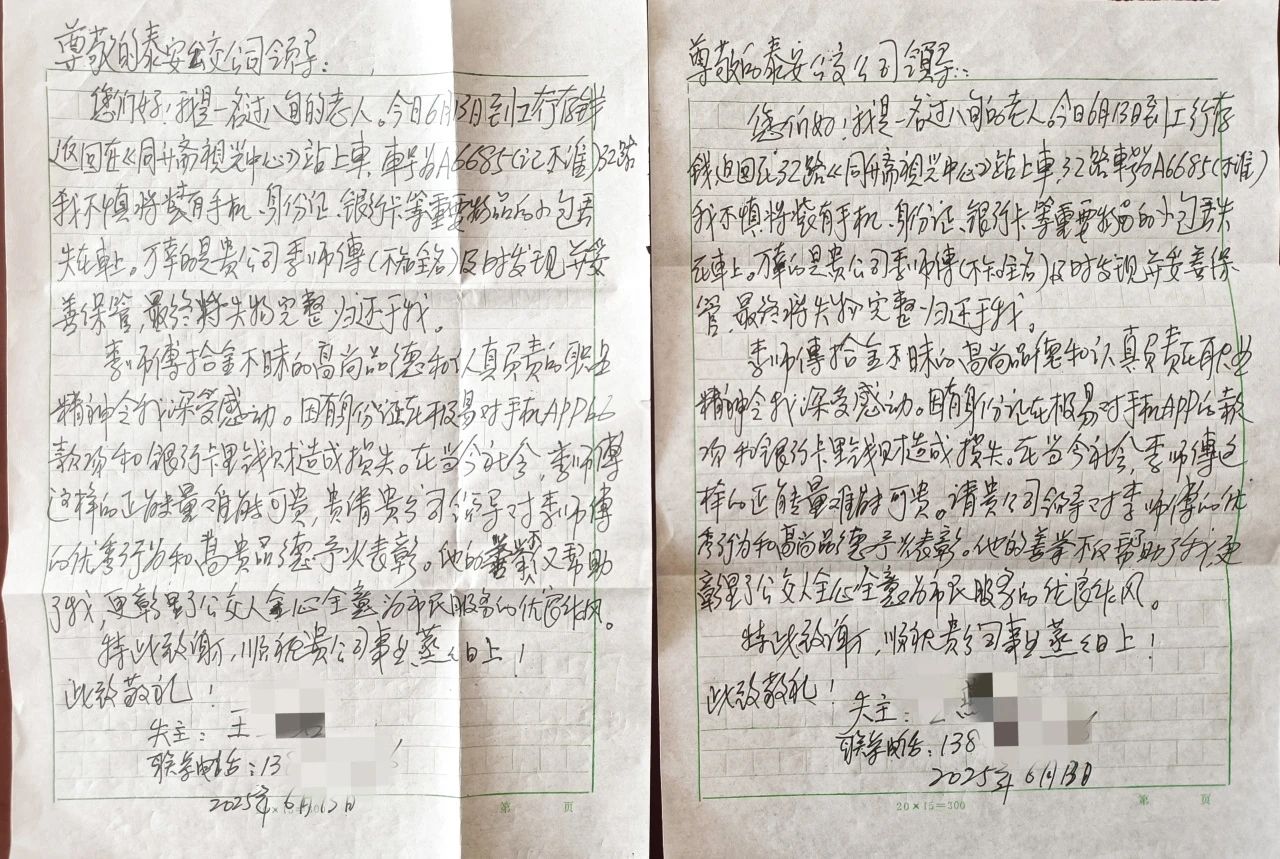 尊敬的泰安公交公司领导：
您们好！我是一名过八旬的老人。今日6月13日到工行存钱
返回在《同济斋视光中心》站上車，車号为A6685（记不准）32路
我不慎将装有手机、身份证、银行卡等重要物品的小包丢
失在車上。万幸的是贵公司李师傅（不知全名）及时发现并妥
善保管，最终将失物完整归还于我。
李师傅拾金不昧的高尚品德和认真负责的职业
精神令我深受感动。因有身份证在极易对手机APP的
款项和银行卡里钱财造成损失。在当今社会，李师傅
这样的正能量难能可贵，贵请贵公司领导对李师傅
的优秀行为和高贵品德予以表彰。他的善举不仅帮助
了我，更彰显了公交人全心全意为市民服务的优良作风。
特此致谢，顺祝贵公司事业蒸蒸日上！
此致敬礼！
失主：王
联系电话：13
2025年6月12日
第 页
尊敬的泰安公交公司领导：
您们好！我是一名过八旬的老人。今日6月13日到工行存
钱，返回在32路《同济斋视光中心》站上車，32路車号A6685（不准）
我不慎将装有手机、身份证、银行卡等重要物品的小包丢失
在車上。万幸的是贵公司李师傅（不知全名）及时发现并妥善保
管，最终将失物完整归还于我。
李师傅拾金不昧的高尚品德和认真负责的职业
精神令我深受感动。因有身份证在极易对手机APP的款
项和银行卡里钱财造成损失。在当今社会，李师傅这
样的正能量难能可贵。请贵公司领导对李师傅的优
秀行为和高尚品德予以表彰。他的善举不仅帮助了我，更
彰显了公交人全心全意为市民服务的优良作风。
特此致谢，顺祝贵公司事业蒸蒸日上！
此致敬礼！
失主：
联系电话：138
2025年6月13日
20×15=300 第 页